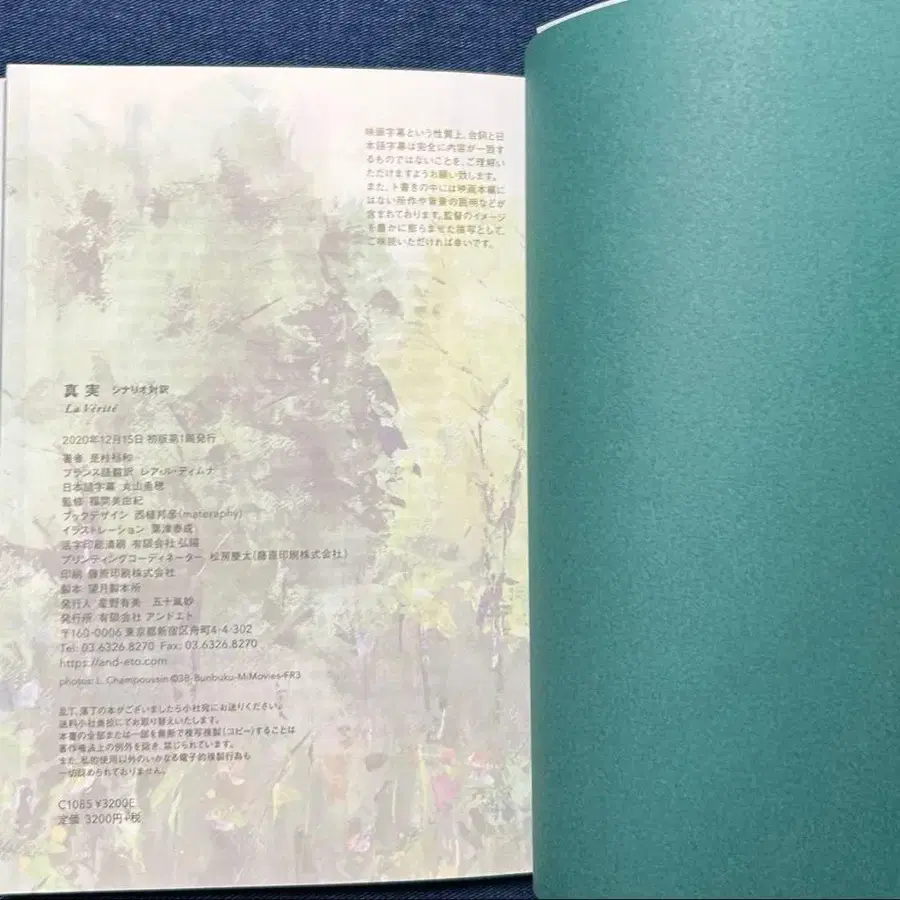 映画字幕という性質上、台詞と日
本語字幕は完全に内容が一致す
るものではないことを、ご理解い
ただけますようお願い致します。
また、ト書きの中には映画本編に
はない所作や背景の説明などが
含まれております。監督のイメージ
を豊かに膨らませた描写として、
ご味読いただければ幸いです。
真実 シナリオ対訳
La Vérité
2020年12月15日 初版第1刷発行
著者 是枝裕和
フランス語翻訳 レア・ル・ディムナ
日本語字幕 丸山垂穂
監修 福間美由紀
ブックデザイン 西植邦彦(materaphy)
イラストレーション 粟津泰成
活字印刷清刷 有限会社 弘陽
プリンティングコーディネーター 松原慶太(藤原印刷株式会社)
印刷 藤原印刷株式会社
製本 望月製本所
発行人 星野有美 五十嵐妙
発行所 有限会社 アンドエト
〒160-0006 東京都新宿区舟町4-4-302
Tel: 03.6326.8270 Fax: 03.6326.8270
https://and-eto.com
photos: L. Champoussin ©3B-Bunbuku-MiMovies-FR3
乱丁、落丁の本がございましたら小社宛にお送りください。
送料小社負担にてお取り替えいたします。
本書の全部または一部を無断で複写複製(コピー)することは
著作権法上の例外を除き、禁じられています。
また、私的使用以外のいかなる電子的複製行為も
一切認められておりません。
C1085 ¥3200E
定価 3200円+税